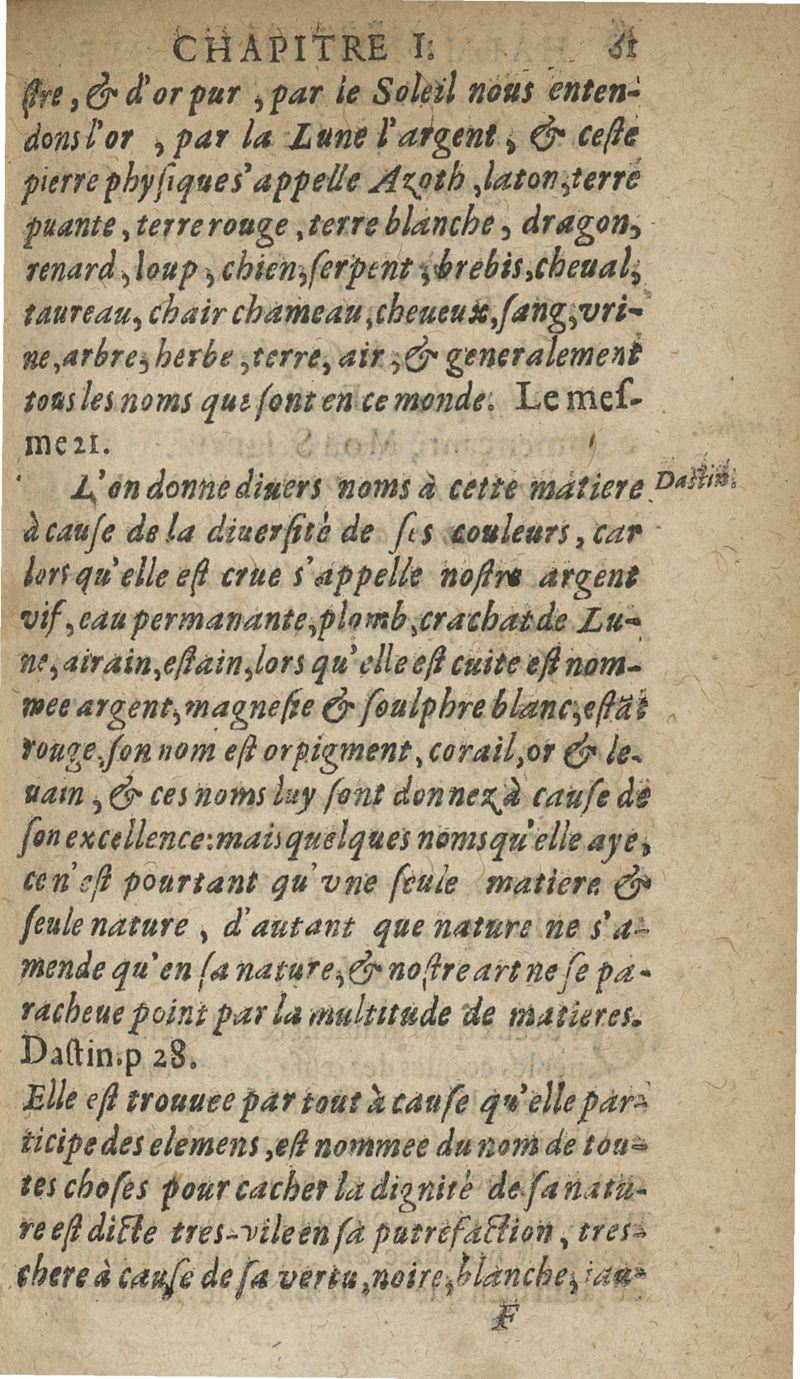 CHAPITRE I. 81
ſtre, & d'or pur, par le Soleil nous enten-
dons l'or, par la Lune l'argent, & ceſte
pierre phyſique s'appelle Azoth, laton, terre
puante, terre rouge, terre blanche, dragon,
renard, loup, chien, ſerpent, brebis, cheual,
taureau, chair chameau, cheueux, ſang, vri-
ne, arbre, herbe, terre, air, & generalement
tous les noms qui ſont en ce monde. Le meſ-
me 21.
L'on donne diuers noms à cette matiere
Dastin.
à cauſe de la diuerſitè de ſes couleurs, car
lors qu'elle eſt crue s'appelle noſtre argent
vif, eau permanante, plomb, crachat de Lu-
ne, airain, eſtain, lors qu'elle eſt cuite eſt nom-
mee argent, magneſie & ſoulphre blanc, eſtāt
rouge, ſon nom eſt orpigment, corail, or & le-
uain, & ces noms luy ſont donnez à cauſe de
ſon excellence: mais quelques noms qu'elle aye,
ce n'eſt pourtant qu'vne ſeule matiere &
ſeule nature, d'autant que nature ne s'a-
mende qu'en ſa nature, & noſtre art ne ſe pa-
racheue point par la multitude de matieres.
Daſtin. p 28.
Elle eſt trouuee par tout à cauſe qu'elle par-
ticipe des elemens, eſt nommee du nom de tou-
tes choſes pour cacher la dignitè de ſa natu-
re eſt dicte tres-vile en ſa putrefaction, tres-
chere à cauſe de ſa vertu, noire, blanche, iau-
F